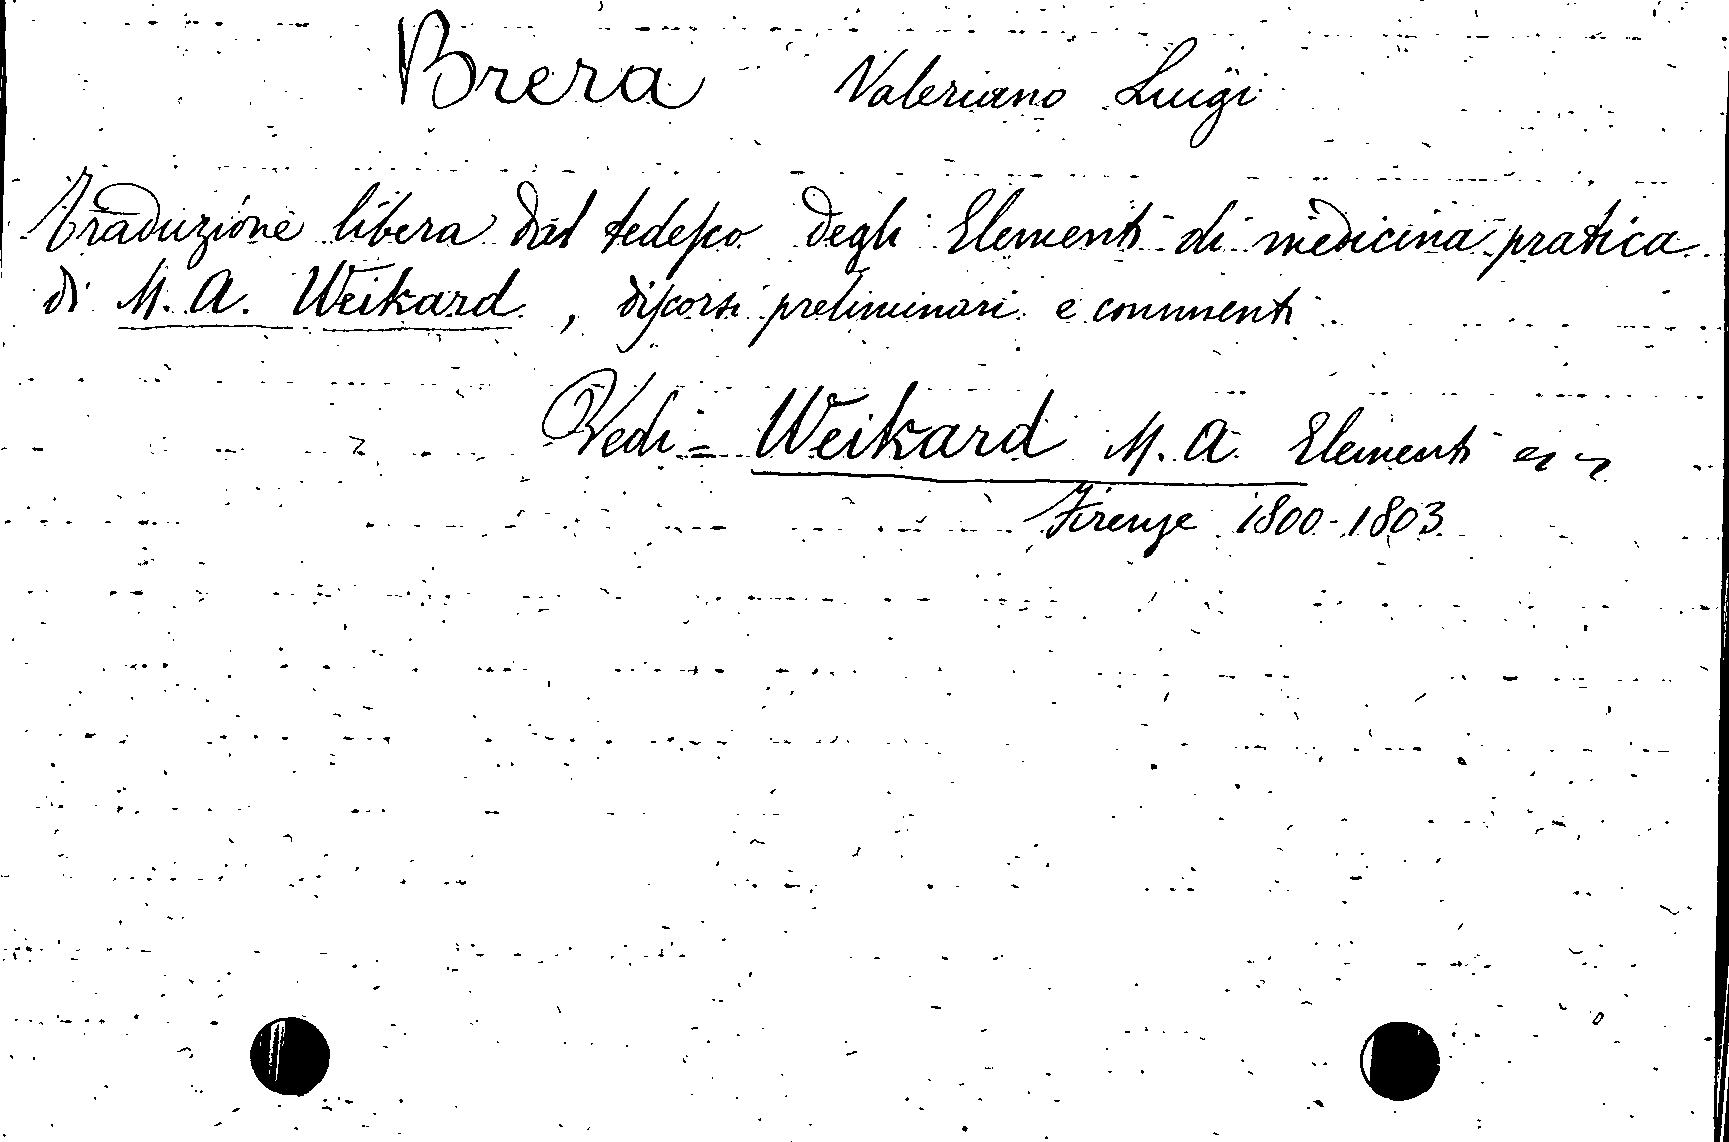 Brera Valeriano Luigi
Traduzione libera dal tedesco degli Elementi di medicina pratica
di M. A. Weikard, discorsi preliminari e commenti
Vedi = Weikard M. A. Elementi
Firenze 1800-1803